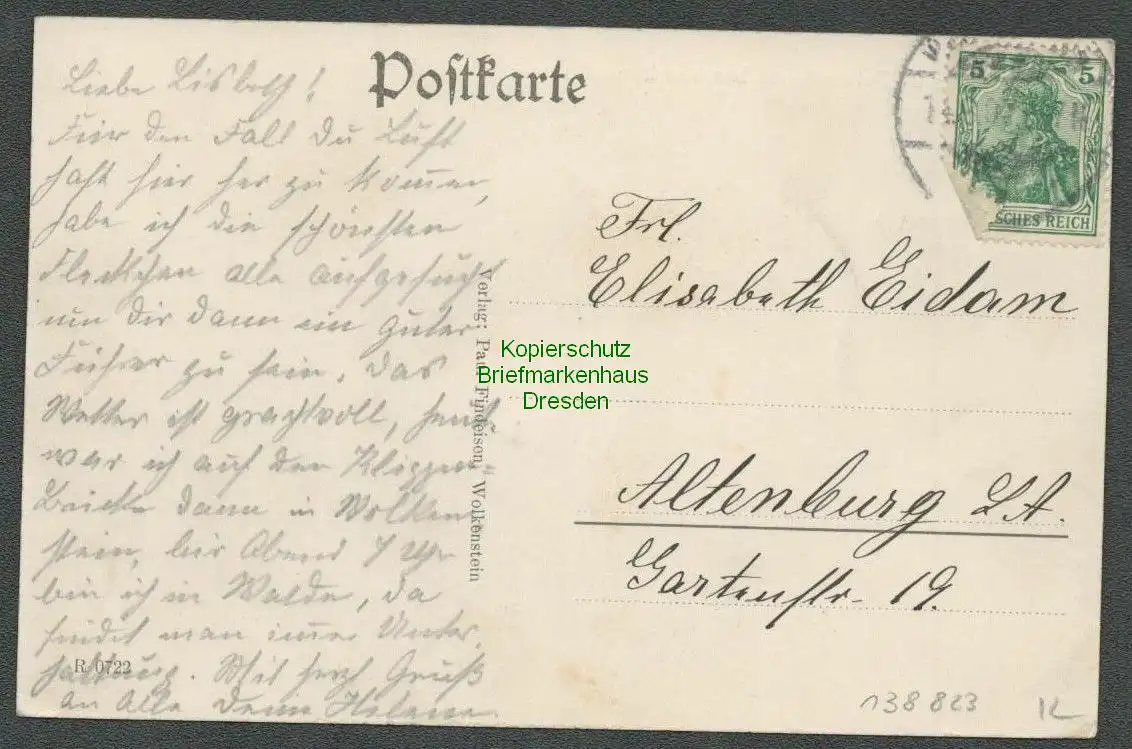 Postkarte
Liebe Lisbeth!
Für den Fall Du Lust
hast hier her zu kommen,
habe ich die schönsten
Fleckchen alle aufgesucht
um Dir dann ein guter
Führer zu sein. Das
Wetter ist prachtvoll, heut
war ich auf der Klippen-
dann in Wolken
stein, bis Abend 7 Uhr
bin ich in Walde, da
findet man immer Unter
haltung. Mit herzl. Gruß
an Alle Deine Helene
R. 0722
Verlag: Paul Findeisen, Wolkenstein
5 5
SCHES REICH
Frl.
Elisabeth Eidam
Altenburg S.A.
Gartenstr. 19.
Kopierschutz
Briefmarkenhaus
Dresden
138823